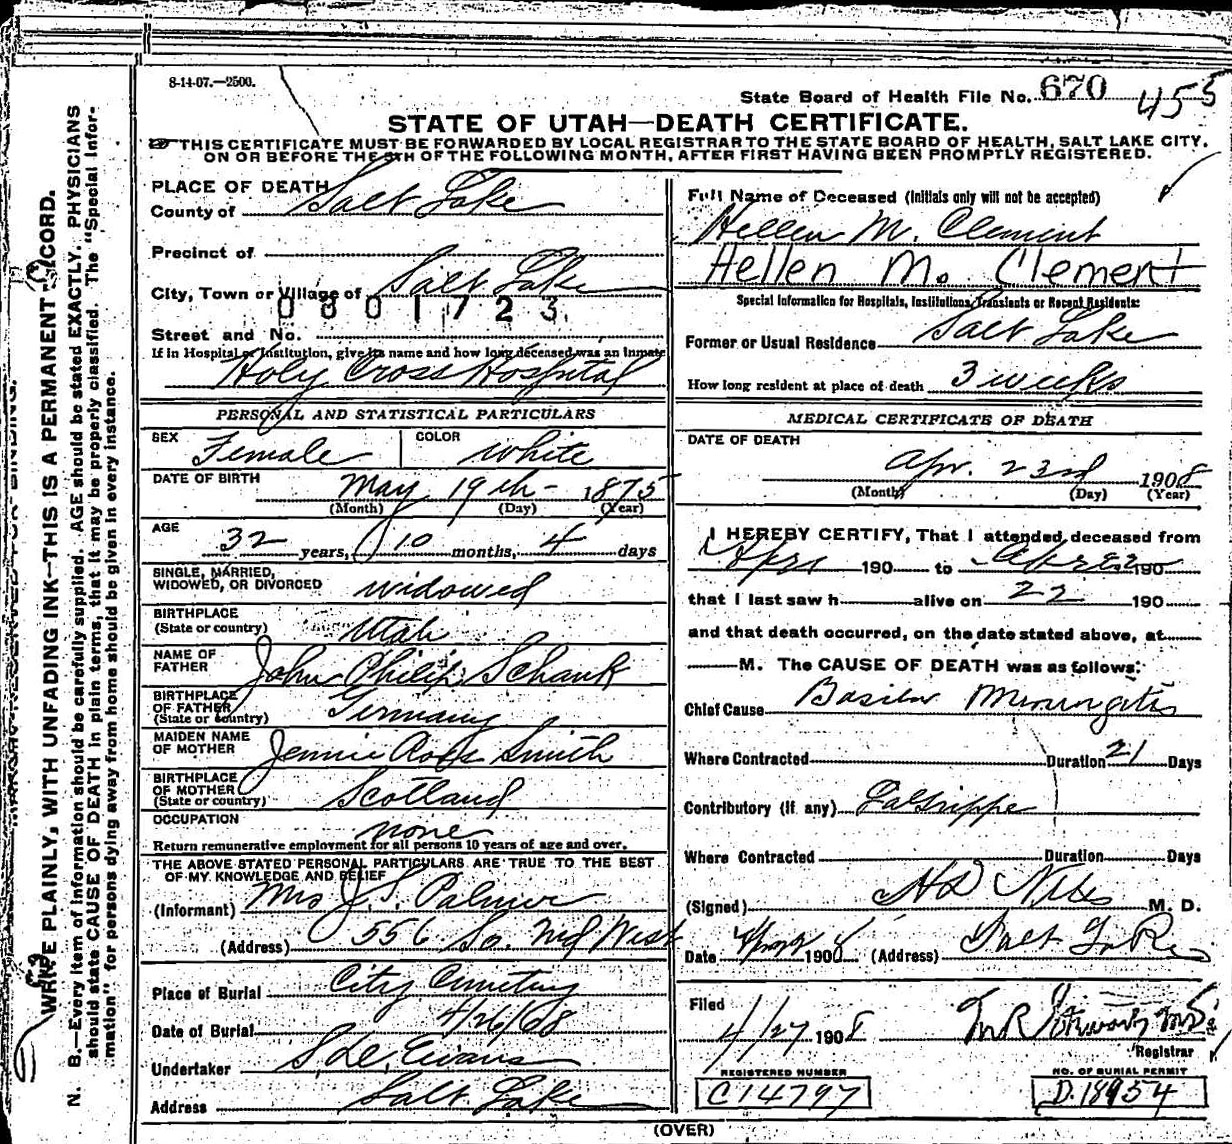 8-14-07.—2500.
State Board of Health File No. 670 455
STATE OF UTAH—DEATH CERTIFICATE.
THIS CERTIFICATE MUST BE FORWARDED BY LOCAL REGISTRAR TO THE STATE BOARD OF HEALTH, SALT LAKE CITY,
ON OR BEFORE THE 5TH OF THE FOLLOWING MONTH, AFTER FIRST HAVING BEEN PROMPTLY REGISTERED.
PLACE OF DEATH
County of Salt Lake
Precinct of
City, Town or Village of Salt Lake
0801723
Street and No.
If in Hospital or Institution, give its name and how long deceased was an inmate
Holy Cross Hospital
PERSONAL AND STATISTICAL PARTICULARS
SEX Female COLOR White
DATE OF BIRTH May 19th - 1875
(Month) (Day) (Year)
AGE 32 years, 10 months, 4 days
SINGLE, MARRIED,
WIDOWED, OR DIVORCED widowed
BIRTHPLACE
(State or country) Utah
NAME OF
FATHER John Philip Schank
BIRTHPLACE
OF FATHER
(State or country) Germany
MAIDEN NAME
OF MOTHER Jennie Smith
BIRTHPLACE
OF MOTHER
(State or country) Scotland
OCCUPATION none
Return remunerative employment for all persons 10 years of age and over.
THE ABOVE STATED PERSONAL PARTICULARS ARE TRUE TO THE BEST
OF MY KNOWLEDGE AND BELIEF
(Informant) Mrs J. S. Palmer
(Address) 556 So. 2nd West
Place of Burial City Cemetery
Date of Burial 4/26/08
Undertaker Evans
Address Salt Lake
Full Name of Deceased (Initials only will not be accepted)
Hellen M. Clement
Hellen M. Clement
Special Information for Hospitals, Institutions, Transients or Recent Residents:
Former or Usual Residence Salt Lake
How long resident at place of death 3 weeks
MEDICAL CERTIFICATE OF DEATH
DATE OF DEATH
Apr. 23rd 1908
(Month) (Day) (Year)
I HEREBY CERTIFY, That I attended deceased from
190 to 190
that I last saw h alive on 22 190
and that death occurred, on the date stated above, at
M. The CAUSE OF DEATH was as follows:
Chief Cause Basilar Meningitis
Where Contracted Duration 21 Days
Contributory (If any) LaGrippe
Where Contracted Duration Days
(Signed) M. D.
Date 1908 (Address) Salt Lake
Filed
4/27 1908
Registrar
REGISTERED NUMBER
C14797
NO. OF BURIAL PERMIT
D.18954
(OVER)
WRITE PLAINLY, WITH UNFADING INK—THIS IS A PERMANENT RECORD.
N. B.—Every item of information should be carefully supplied. AGE should be stated EXACTLY. PHYSICIANS
should state CAUSE OF DEATH in plain terms, that it may be properly classified. The "Special Infor-
mation" for persons dying away from home should be given in every instance.